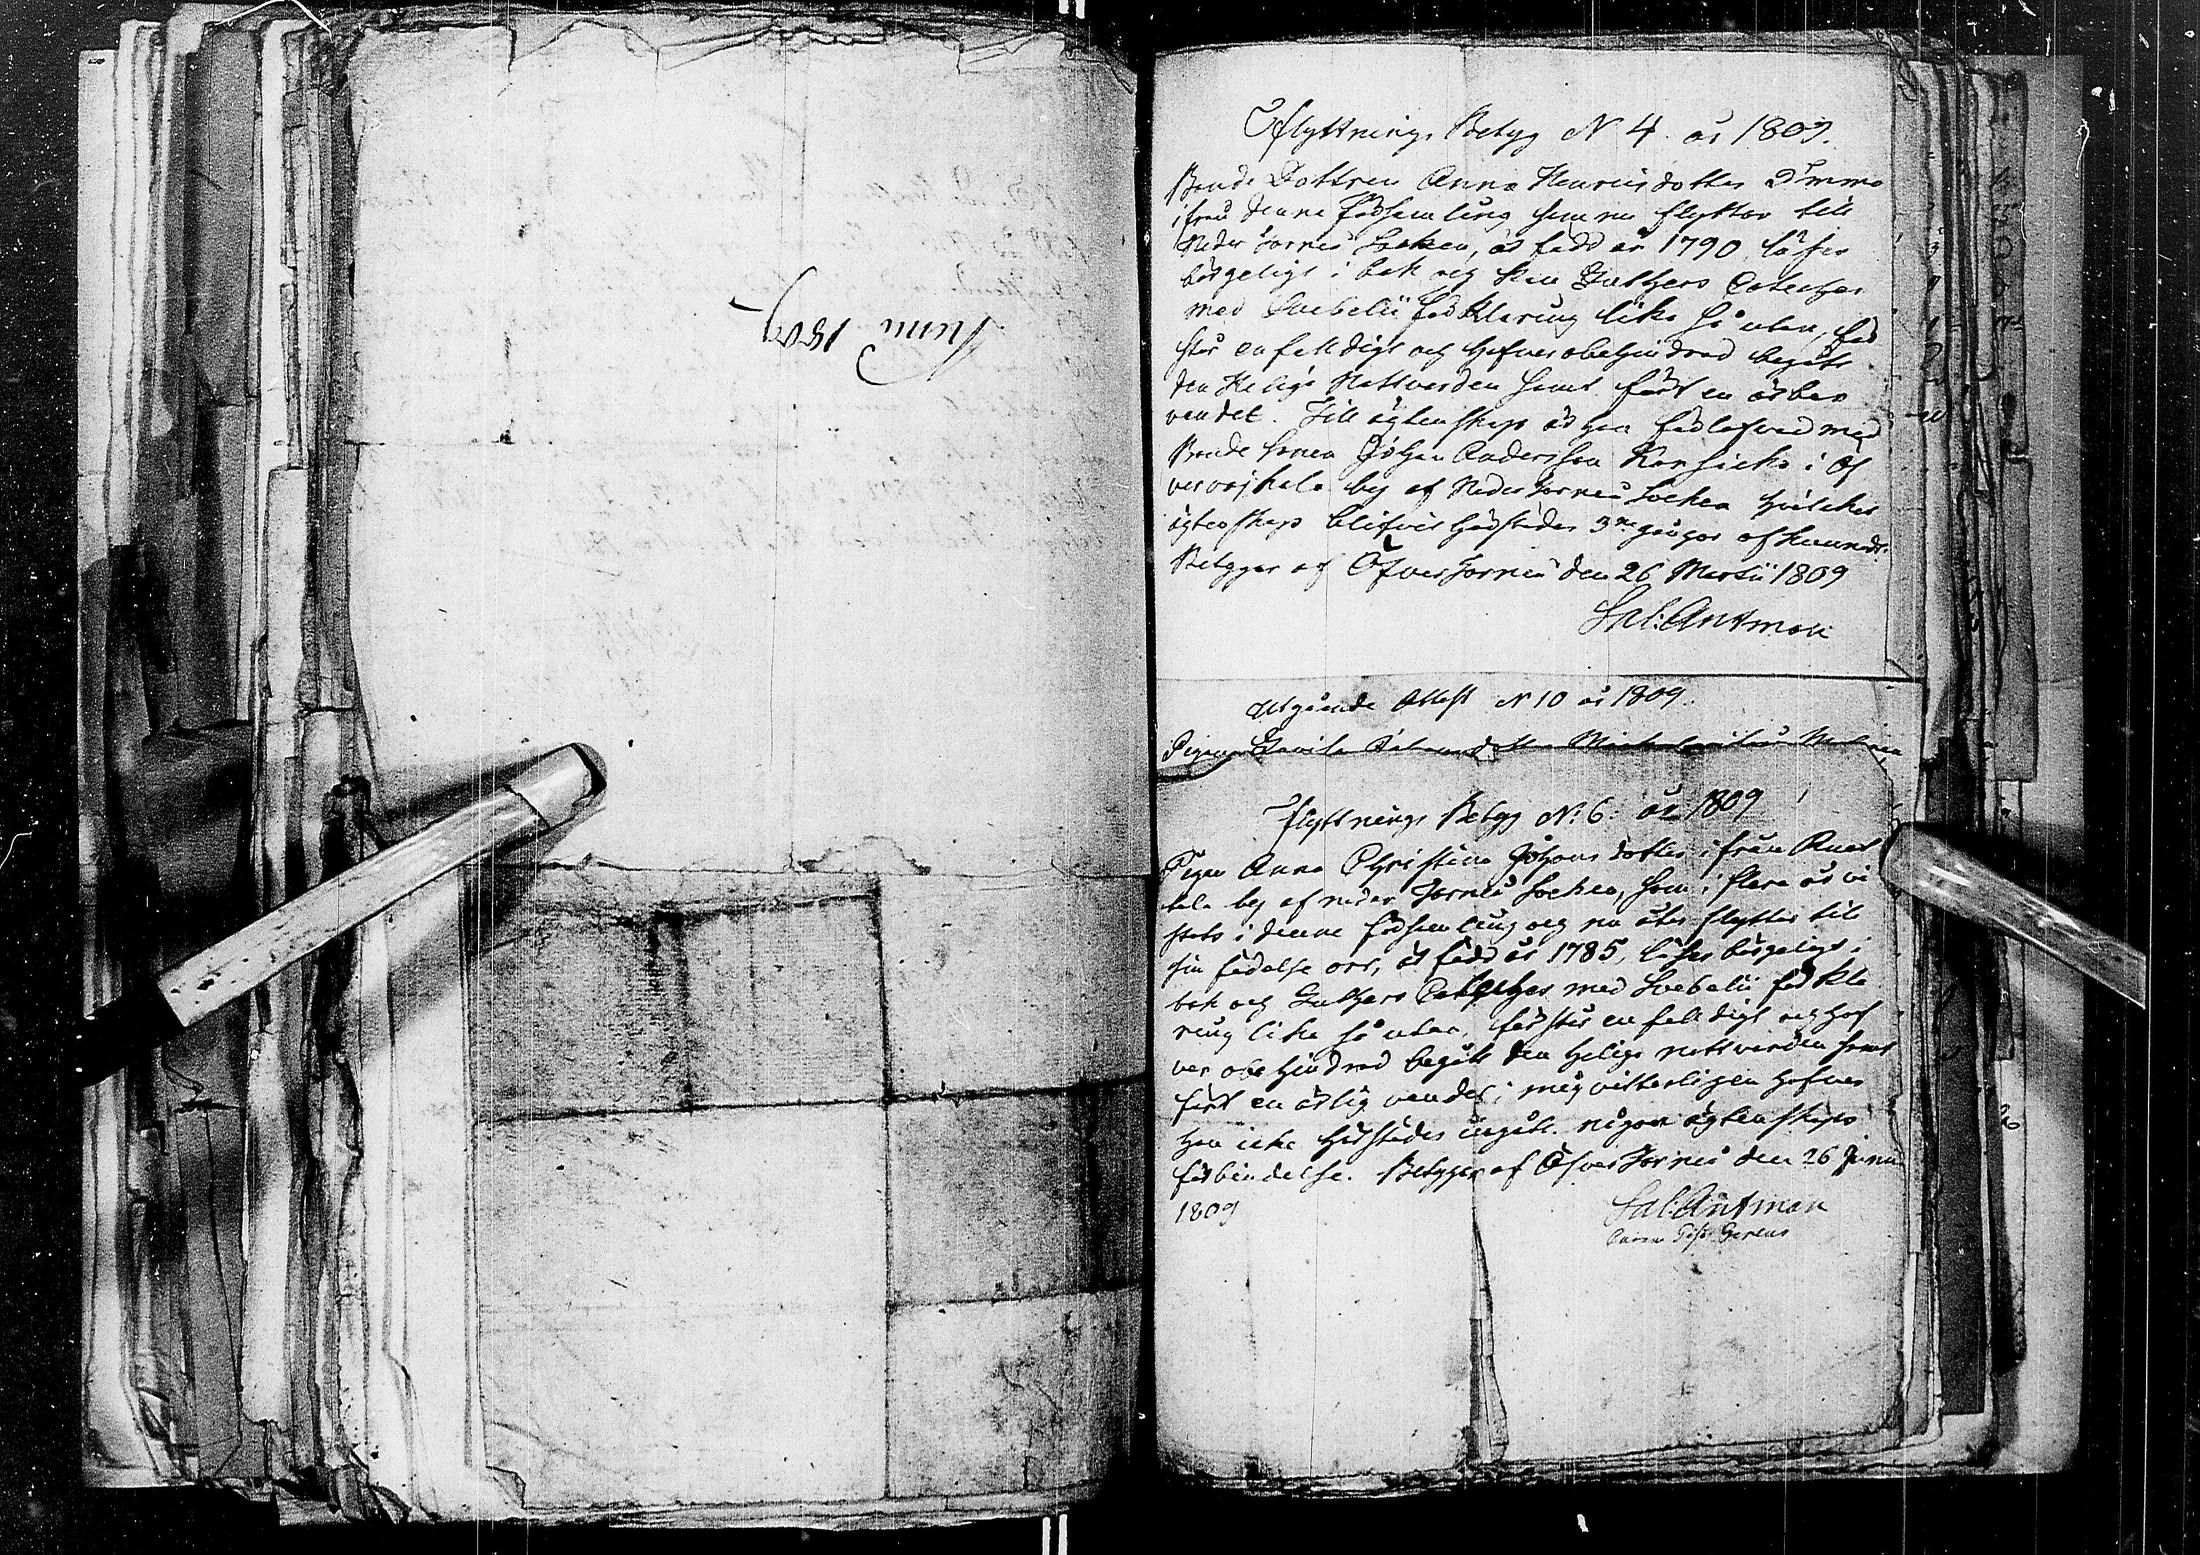 Anno 1809
Flyttnings Betyg N 4 år 1809.
Bonde Dottren Anna Henricsdotter
ifrån denna församling som nu flyttar till
Neder Torneå Socken, är född år 1790, läser
börgeligt i bok och kan Luthers Cateches
med Svebelii förklaring lika så utan, för
står enfalldigt och hafver obehindrad begått
den Heliga Nattvarden samt fört en ärbar
vandel. Till ägtenskap är hon förlofvad med
Bonde Sonen Johan Andersson i Öf
vervojkala by af Neder Torneå Socken hvilcket
ägtenskap blifvit härstädes 3ne gångor afkunnadt.
Betygar af Öfver Torneå den 26 Martii 1809
Sal: Antman
Utgående Attest N 10 år 1809.
Pigan
Flyttnings Betyg N: 6: år 1809
Pigan Anna Christina Johansdotter ifrån
kala by af neder Torneå Socken, som i flera år vi
stats i denna församling och nu åter flyttar till
sin födelse ort, är född år 1785, läser börgeligt i
bok och Luthers Cateches med Svebelii förkla
ring lika så utan, förstår enfalldigt och haf
ver obehindrad begått den Heliga nattvarden samt
fört en ärlig vandel; mig vitterligen hafver
hon icke härstädes ingått någon ägtenskaps
förbindelse. Betygar af Öfver Torneå den 26 Junii
1809
Sal: Antman